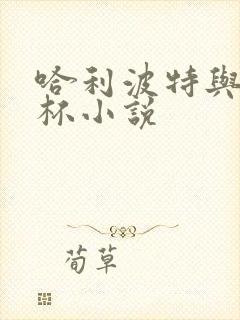 哈利波特與
杯小說
荀草